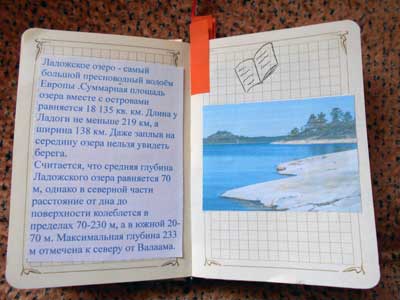 Ладожское озеро - самый
большой пресноводный водоём
Европы .Суммарная площадь
озера вместе с островами
равняется 18 135 кв. км. Длина у
Ладоги не меньше 219 км, а
ширина 138 км. Даже заплыв на
середину озера нельзя увидеть
берега.
Считается, что средняя глубина
Ладожского озера равняется 70
м, однако в северной части
расстояние от дна до
поверхности колеблется в
пределах 70-230 м, а в южной 20-
70 м. Максимальная глубина 233
м отмечена к северу от Валаама.